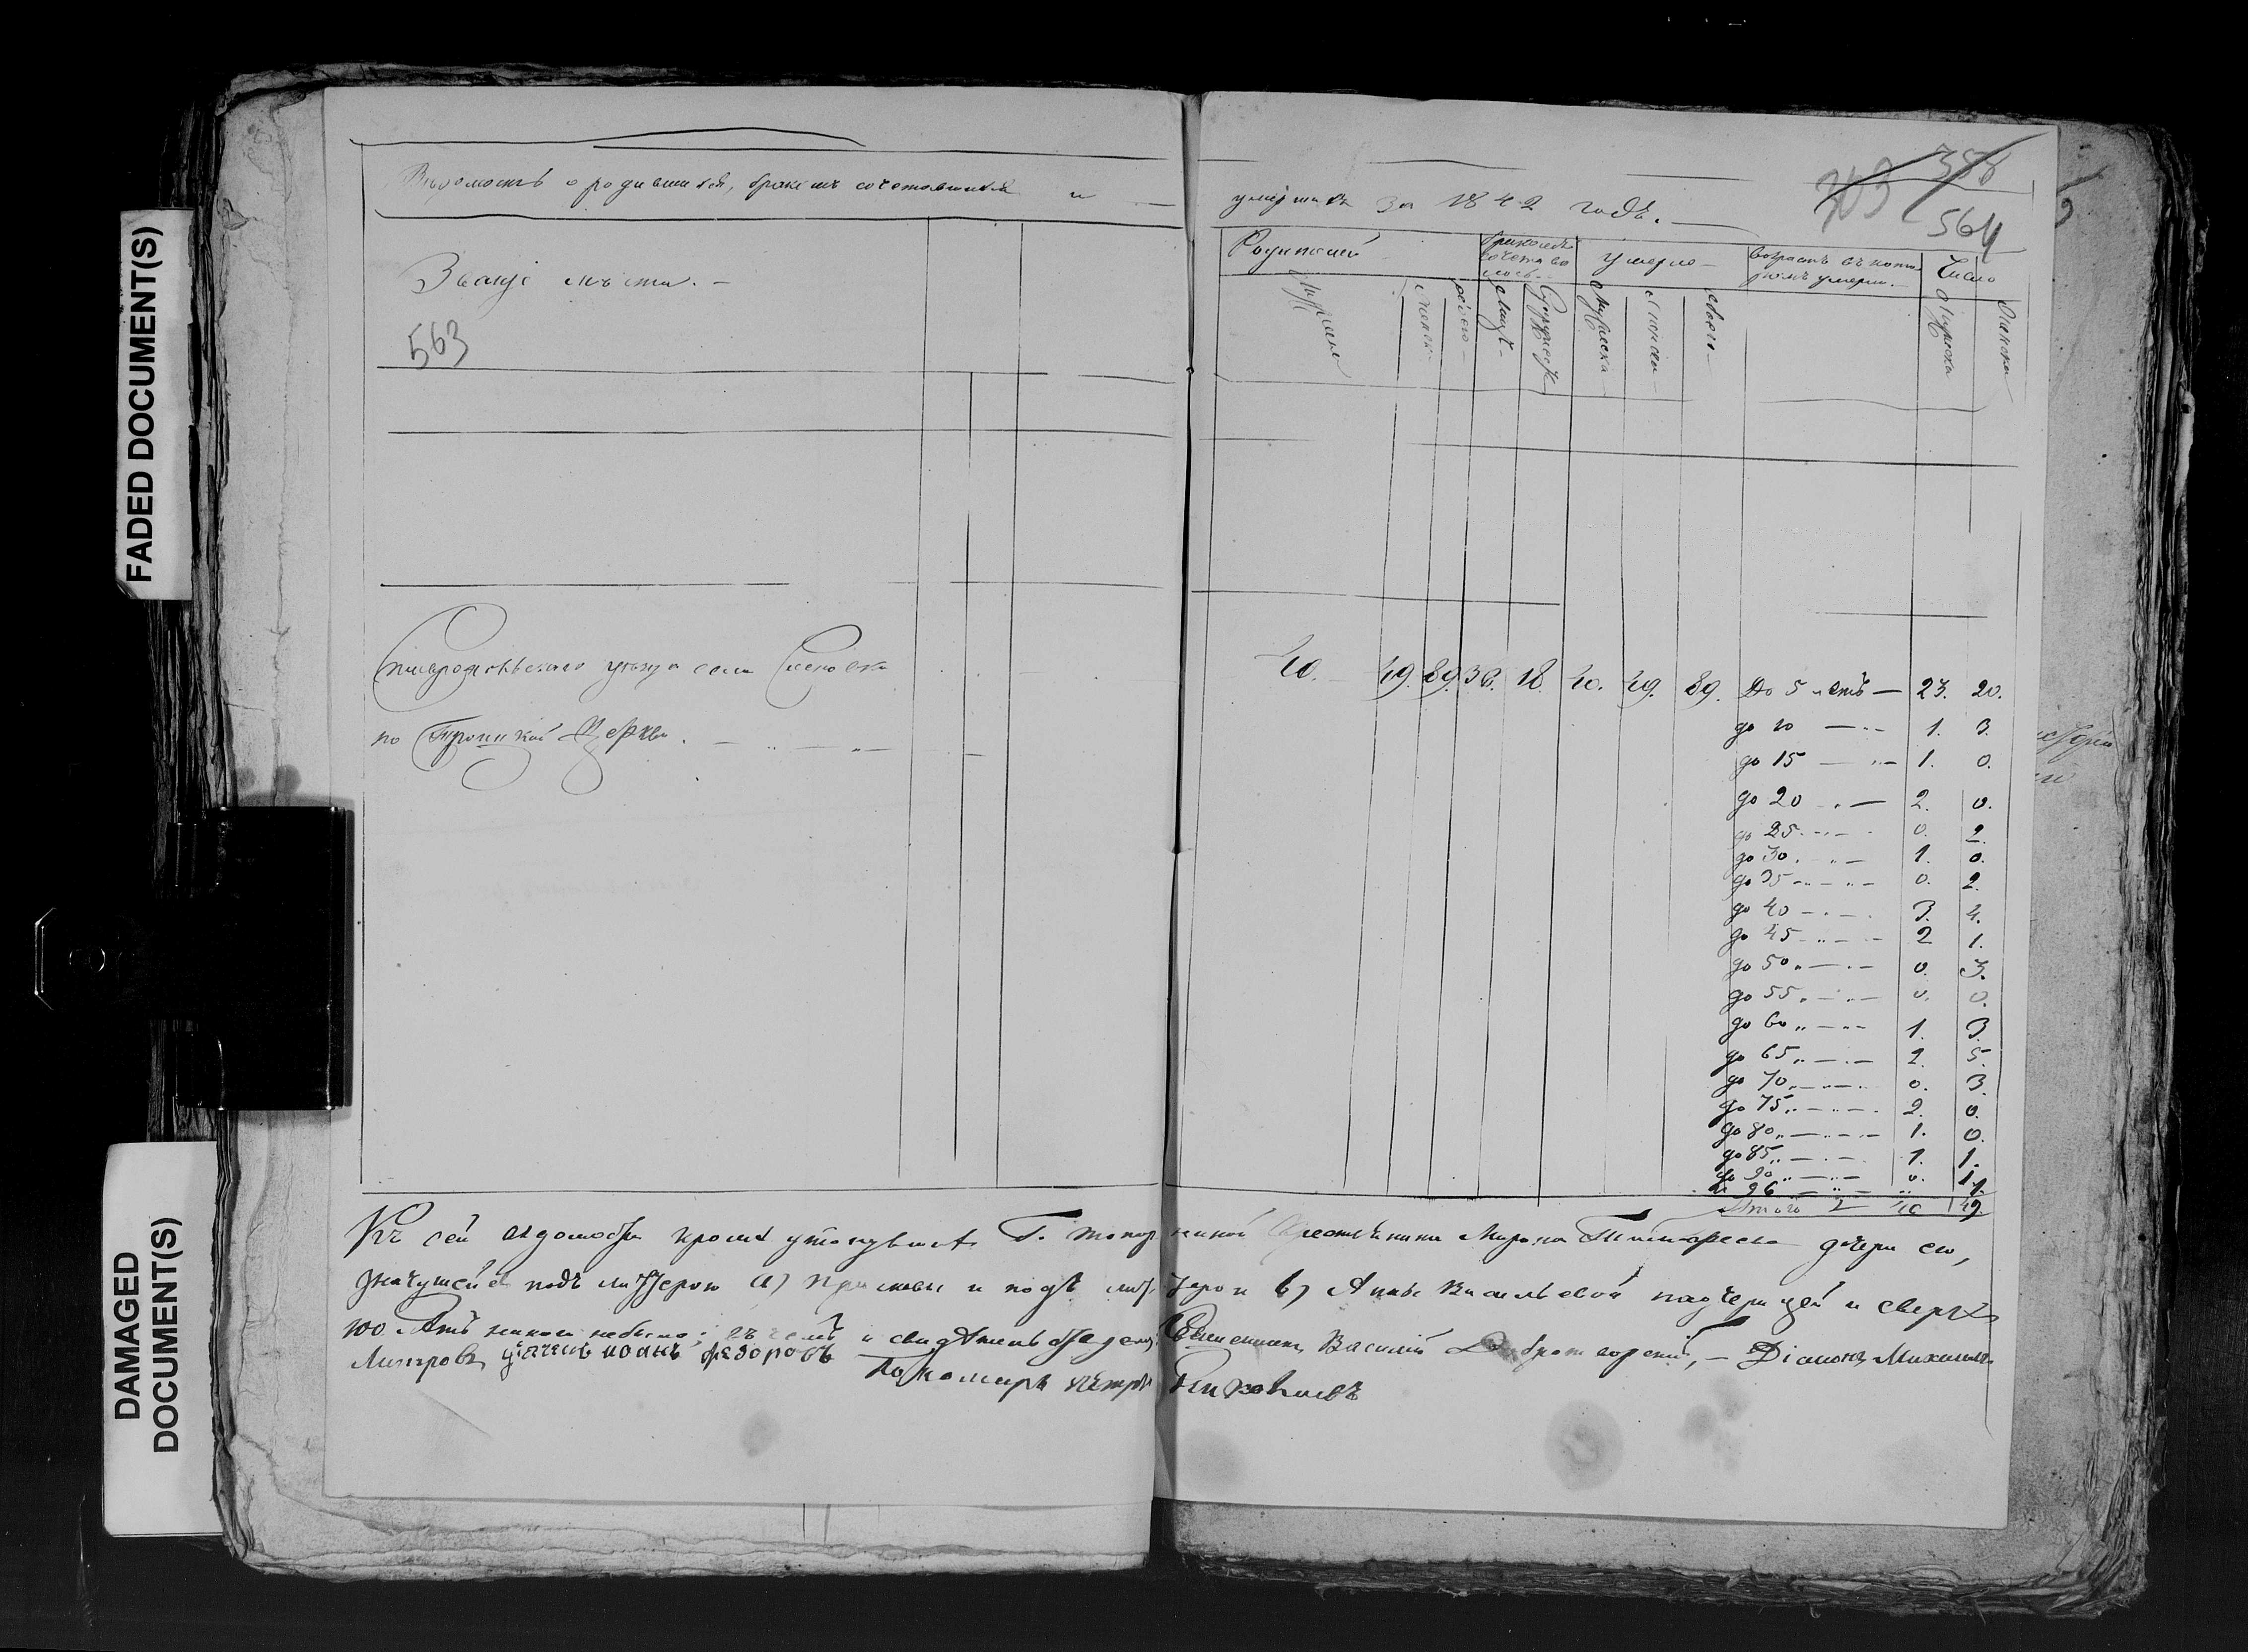 FADED DOCUMENT(S)
DAMAGED
DOCUMENT(S)
Вѣдомость о родившихся, бракомъ сочетавшихся и умершихъ за 1842 годъ.
703 358
564
Званіе мѣста.
563
Родившихся
бракомъ сочеталось
Умерло
возрастъ въ которомъ умерли.
Число
Мужска
Женска
обоего
Лицъ
Супружествъ
Мужеска
Женска
обоего
Мужска
Женска
уѣзда села
по Троицкой Церкви.
40. 49. 89. 36. 18. 40. 49. 89. До 5 летъ — 23. 20.
до 10 1. 3.
до 15 1. 0.
до 20 2. 0.
до 25 0. 2.
до 30 1. 0.
до 35 0. 2.
до 40 3. 4.
до 45 2 1.
до 50 0. 3.
до 55 0. 0.
до 60 1. 3.
до 65 2. 5.
до 70 0. 3.
до 75 2. 0.
до 80 1. 0.
до 85 1. 1.
до 90 0. 1.
96 1.
Итого 40 49.
Къ сей ведомости кроме Г. крестьянина Мирона дочери его,
подъ литерою а) и подъ литерою в) Анны Васильевой падчерицей и сверхъ
100 летъ никого небыло; въ чемъ и свидѣтельствуемъ Священникъ Василій Доброт Діаконъ Михаилъ
дьячекъ иоаннъ федоровъ Пономарь петръ